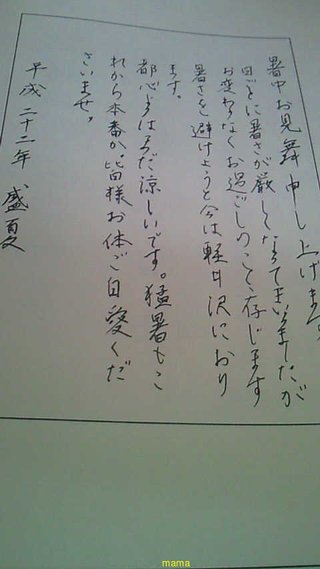 暑中お見舞申し上げます
日ごとに暑さが厳しくなってまいりましたが
お変わりなくお過ごしのことと存じます
暑さを避けようと今は軽井沢におり
ます。
都心よりはまだ涼しいです。猛暑もこ
れから本番か。皆様お体ご自愛くだ
さいませ。
平成二十一年 盛夏
mama